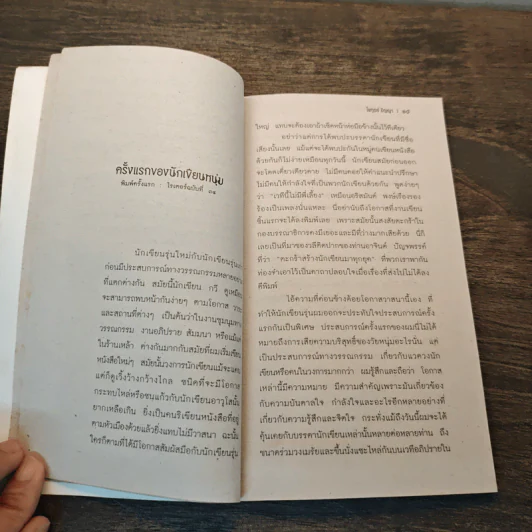 ครั้งแรกของนักเขียนหนุ่ม
พิมพ์ครั้งแรก : ไรเตอร์ฉบับที่ ๓๑
นักเขียนรุ่นใหม่กับนักเขียนรุ่น
ก่อนมีประสบการณ์ทางวรรณกรรมหลายอย่าง
ที่แตกต่างกัน สมัยนี้นักเขียน กวี ดูเหมือน
จะสามารถพบหน้ากันง่ายๆ ตามโอกาส วาระ
และสถานที่ต่างๆ เป็นต้นว่าในงานชุมนุมทาง
วรรณกรรม งานอภิปราย สัมมนา หรือแม้แต่
ในร้านเหล้า ต่างกันมากกับสมัยที่ผมเริ่มเขียน
หนังสือใหม่ๆ สมัยนั้นวงการนักเขียนแม้จะแคบ
แต่ก็ดูเวิ้งว้างกว้างไกล ชนิดที่จะมีโอกาส
กระทบไหล่หรือชนแก้วกับนักเขียนอาวุโสนั้น
ยากเหลือเกิน ยิ่งเป็นคนริเขียนหนังสือที่อยู่
ตามหัวเมืองด้วยแล้วยิ่งแทบไม่มีวาสนา ฉะนั้น
ใครก็ตามที่ได้มีโอกาสสัมผัสมือกับนักเขียนรุ่น
ไพฑูรย์ ธัญญา | ๑๗
ใหญ่ แทบจะต้องเอาผ้าเช็ดหน้าห่อมือข้างนั้นไว้ทีเดียว
อย่าว่าแต่การได้พบปะบรรดานักเขียนที่มีชื่อ
เสียงนั้นเลย แม้แต่จะได้พบปะกันในหมู่คนเขียนหนังสือ
ด้วยกันก็ไม่ง่ายเหมือนทุกวันนี้ นักเขียนสมัยก่อนออก
จะโดดเดี่ยวเดียวดาย ไม่มีคนคอยให้คำแนะนำปรึกษา
ไม่มีคนให้กำลังใจที่เป็นพวกนักเขียนด้วยกัน พูดง่ายๆ
ว่า "เวทีนี้ไม่มีพี่เลี้ยง" เหมือนอริสมันต์ พงษ์เรืองรอง
ร้องเป็นเพลงนั่นแหละ นี่อย่านับถึงโอกาสที่งานเขียน
ชิ้นแรกจะได้ลงพิมพ์เลย เพราะสมัยนั้นสงสัยตะกร้าใน
กองบรรณาธิการคงมีเยอะและมีที่ว่างมากเสียด้วย นี่ก็
เลยเป็นที่มาของวลีคิดปากของท่านอาจินต์ ปัญจพรรค์
ที่ว่า "ตะกร้าสร้างนักเขียนมาทุกยุค" ที่พวกเราพากัน
ท่องจำเอาไว้เป็นคาถาปลอบใจเมื่อเรื่องที่ส่งไปไม่ได้ลง
ตีพิมพ์
ได้ความที่ค่อนข้างด้อยโอกาสวาสนานี้เอง ที่
ทำให้นักเขียนรุ่นผมออกจะประทับใจประสบการณ์ครั้ง
แรกกันเป็นพิเศษ ประสบการณ์ครั้งแรกของผมนี่ไม่ได้
หมายถึงการเสียความบริสุทธิ์ของวัยหนุ่มอะไรนั่น แต่
เป็นประสบการณ์ทางวรรณกรรม เกี่ยวกับแวดวงนัก
เขียนหรือคนในวงการมากกว่า ผมรู้สึกและถือว่า โอกาส
เหล่านี้มีความหมาย มีความสำคัญเพราะมันเกี่ยวข้อง
กับความบันดาลใจ กำลังใจและอะไรอีกหลายอย่างที่
เกี่ยวกับความรู้สึกและจิตใจ กระทั่งแม้ถึงวันนี้ผมจะได้
คุ้นเคยกับบรรดานักเขียนเหล่านั้นหลายต่อหลายท่าน ถึง
ขนาดร่วมวงเมรัยและขึ้นนั่งแซะไหล่กันบนเวทีอภิปรายใน